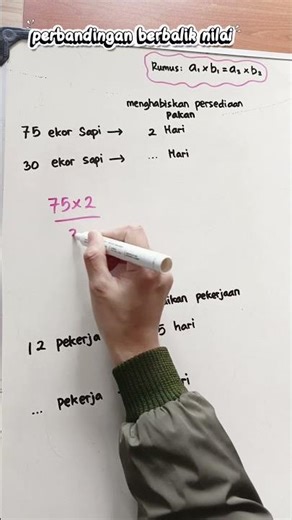 perbandingan berbalik nilai
Rumus: a₁ x b₁ = a₂ x b₂
menghabiskan persediaan
pakan
75 ekor Sapi → 2 Hari
30 ekor sapi → ... Hari
75 x 2
pekerjaan
12 pekerja 5 hari
... pekerja